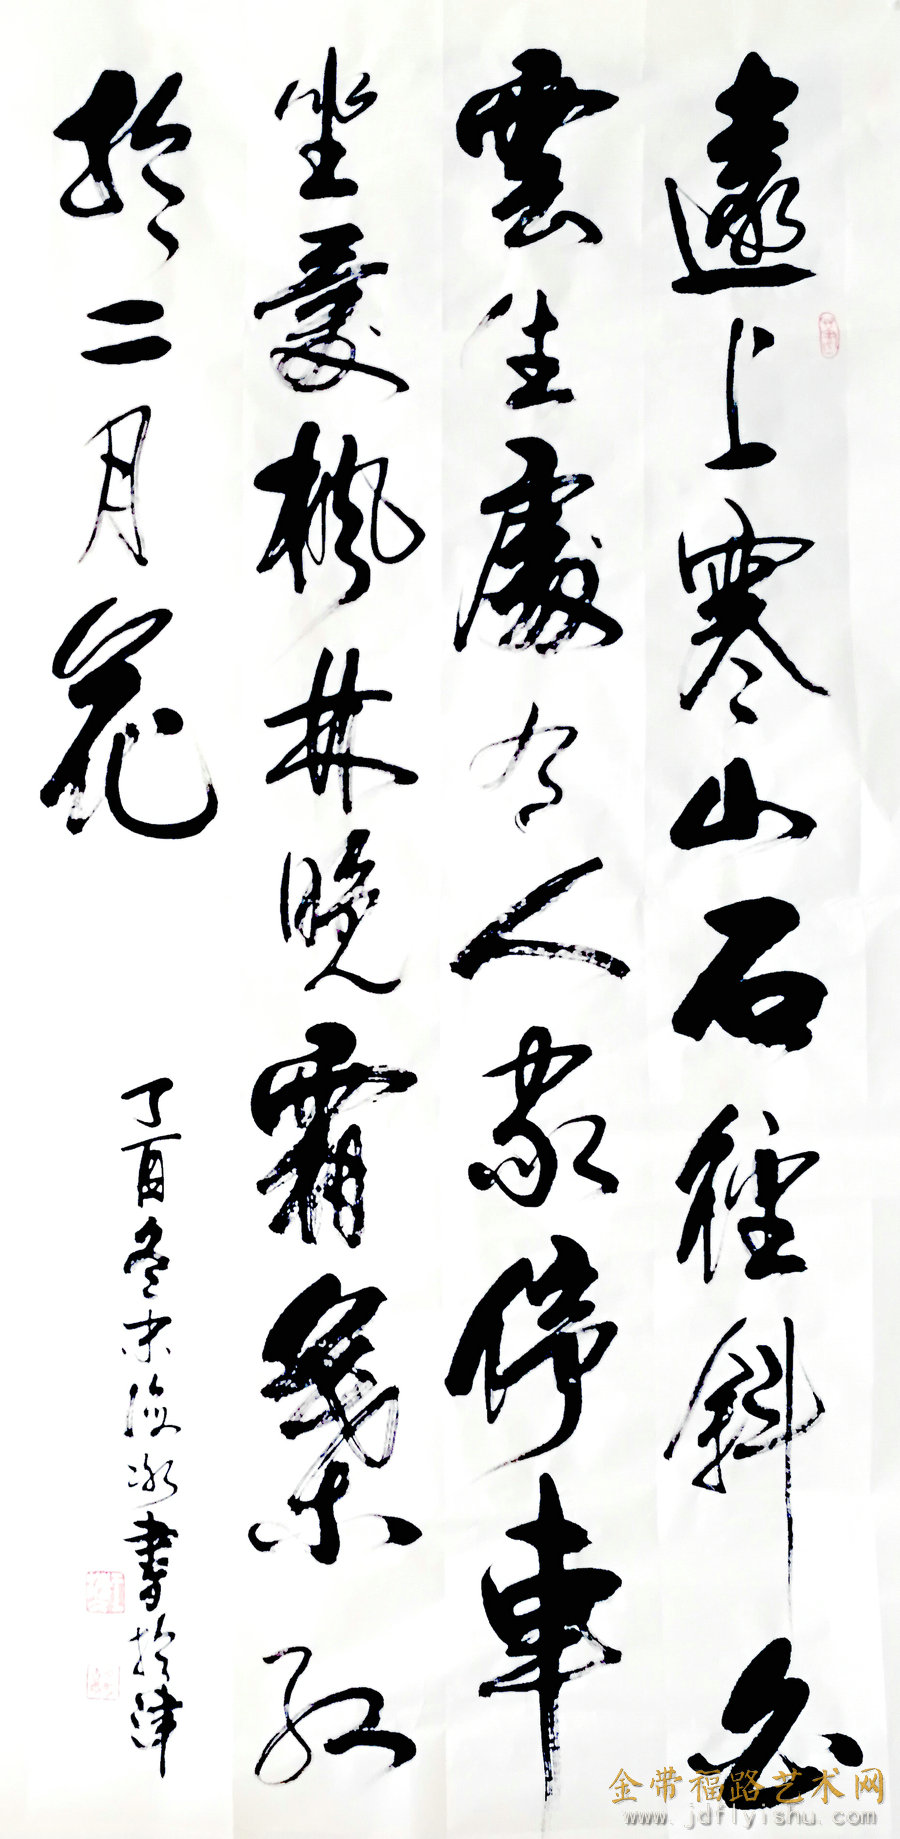 遠上寒山石徑斜白
雲生處有人家停車
坐愛楓林晚霜葉紅
於二月花
丁酉冬末海冰書於津
金带福路艺术网
www.jdflyishu.com